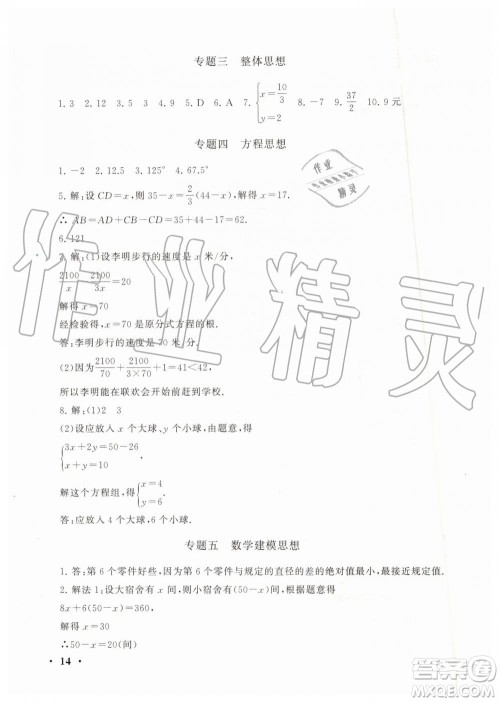 专题三 整体思想
1. 3 2. 12 3. 12 4. 2019 5. D 6. A 7. {x=10/3 y=2 8. -7 9. 37/2 10. 9元
专题四 方程思想
1. -2 2. 12.5 3. 125° 4. 67.5°
5. 解:设 CD=x,则 35-x=2/3(44-x),解得 x=17.
∴ AB=AD+CD-CD=35+44-17=62.
6. 121
7. 解:(1)设李明步行的速度是 x 米/分,
2100/x-2100/3x=20
解得 x=70
经检验得,x=70 是原分式方程的根.
答:李明步行的速度是 70 米/分.
(2)因为2100/70+2100/3×70+1=41<42
所以李明能在联欢会开始前赶到学校.
8. 解:(1)2 3
(2)设应放入 x 个大球,y 个小球,由题意,得
{3x+2y=50-26 x+y=10
解这个方程组,得{x=4 y=6
答:应放入 4 个大球,6 个小球.
专题五 数学建模思想
1. 答:第 6 个零件好些,因为第 6 个零件与规定的直径的差的绝对值最小.
2. 解法 1:设大宿舍有 x 间,则小宿舍有(50-x)间,
8x+6(50-x)=360
解得 x=30
∴50-x=20(间)
· 14 ·
作业精灵
作业
精灵
答案圈
MXQE.COM